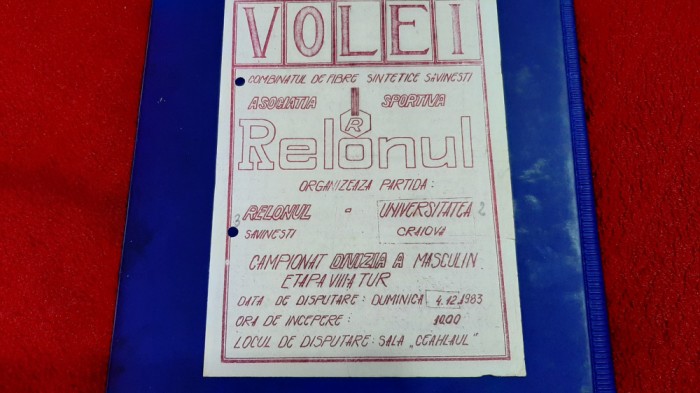 VOLEI
COMBINATUL DE FIBRE SINTETICE SAVINESTI
ASOCIATIA SPORTIVA
R
Relonul
ORGANIZEAZA PARTIDA:
3 RELONUL - UNIVERSITATEA 2
SAVINESTI CRAIOVA
CAMPIONAT DIVIZIA A MASCULIN
ETAPA VIII-A TUR
DATA DE DISPUTARE: DUMINICA 4.12.1983
ORA DE INCEPERE: 10.00
LOCUL DE DISPUTARE: SALA „CEAHLAUL"